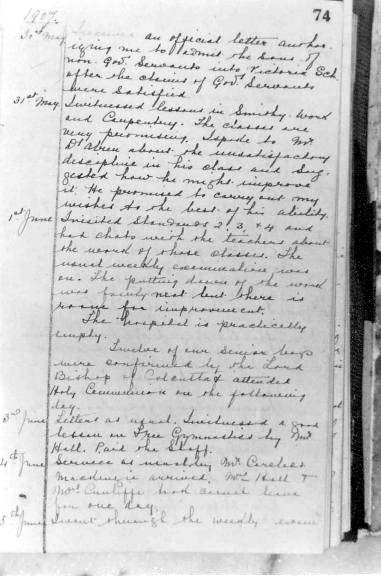 1907.
74
30th May I received an official letter author-
ising me to admit the sons of
non. Govt Servants into Victoria Sch.
after the claims of Govt Servants
were satisfied
31st May I witnessed lessons in Smithy Work
and Carpentry. The classes are
very promising. I spoke to Mr.
D'Abreu about the unsatisfactory
discipline in his class and sug-
gested how he might improve
it. He promised to carry out my
wishes to the best of his ability.
1st June I visited Standards 2, 3, & 4 and
had chats with the teachers about
the work of those classes. The
usual weekly examination was
on. The putting down of the work
was fairly neat but there is
room for improvement.
The hospital is practically
empty.
Twelve of our Senior boys
were confirmed by the Lord
Bishop of Calcutta & attended
Holy Communion on the following
day.
3rd June Letters as usual. I witnessed a good
lesson in Free Gymnastics by Mr.
Hall. Paid the Staff.
4th June Service as usual by Mr.
Machine arrived. Mr. Hall &
Mrs. Cunliffe had casual leave
for one day.
5th June I went through the weekly exam